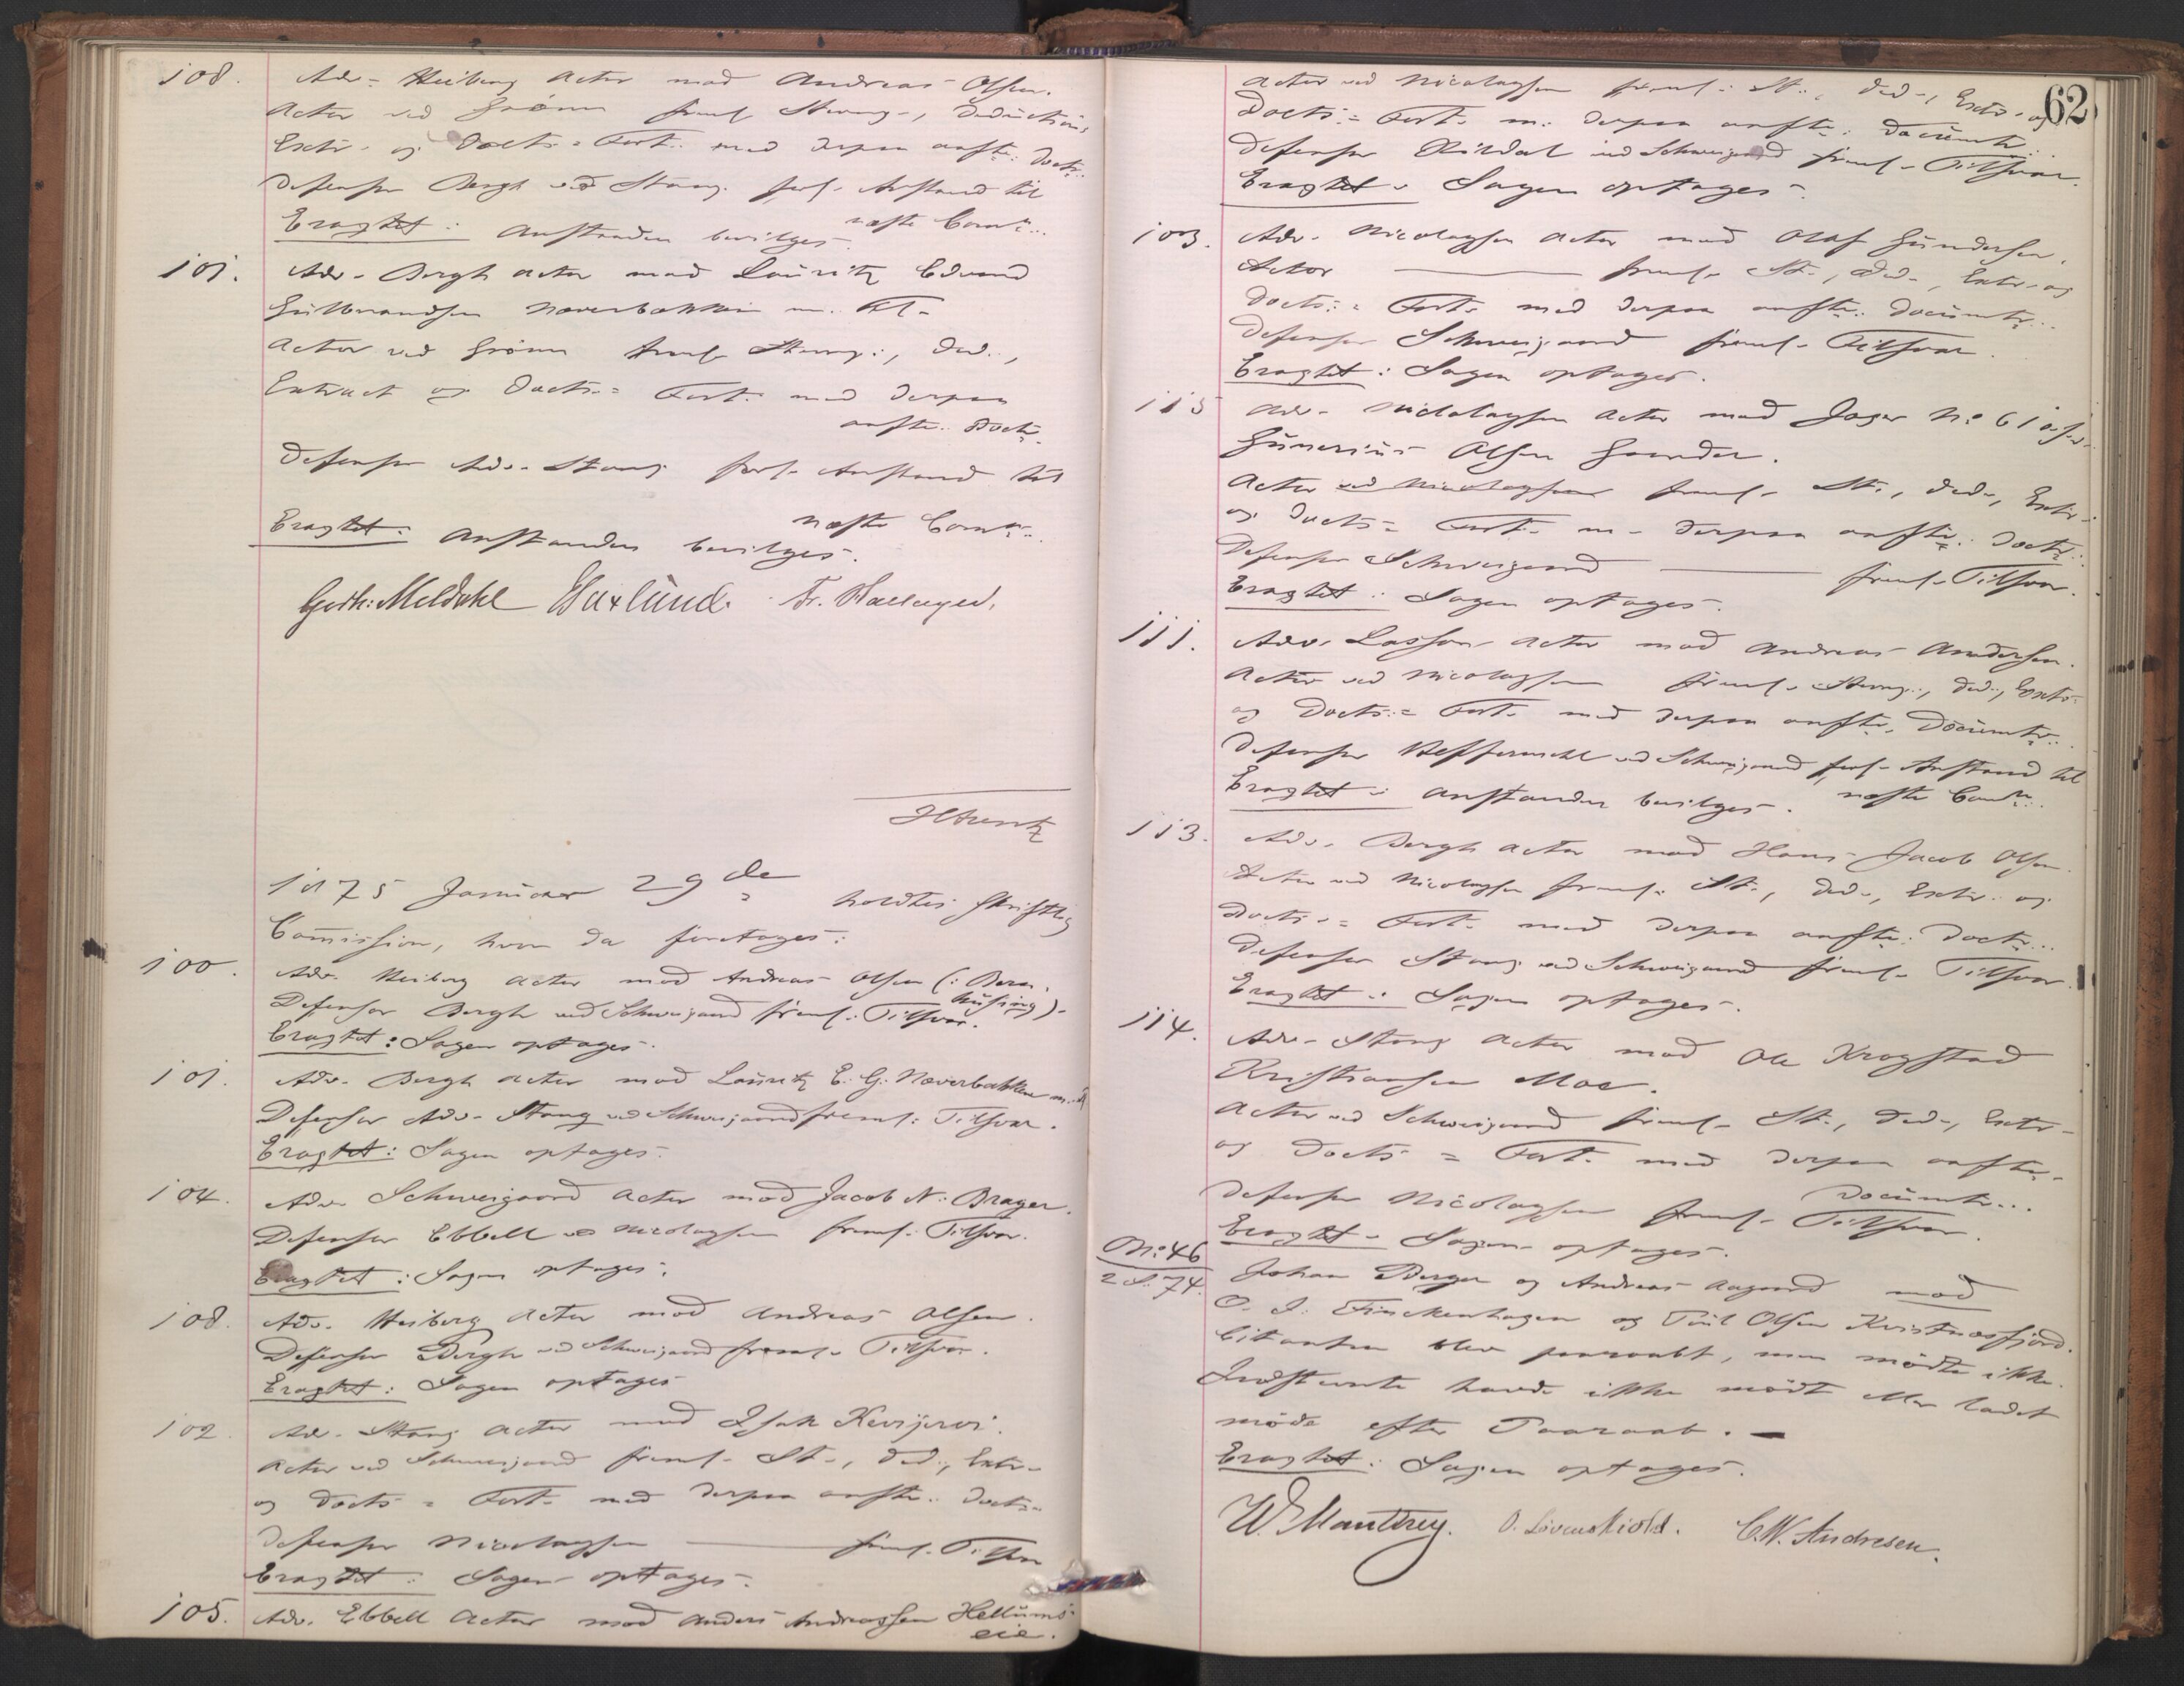 108. Adv. Heiberg Actor mod Andreas Olsen.
Actor ved Grønn freml. Stevng., Deductions
Extr. og Docts.= Fort. med derpaa anførte Doctr.
Defensor Bergh ved Stang forl. Anstand til
næste Comn..
Eragtet: Anstanden bevilges.
101. Adv. Bergh Actor mod Lauritz Edvard
Gulbrandsen Næverbakken m. Fl.
Actor ved Grønn freml. Stevng:, Ded.,
Extract og Docts.= Fort. med derpaa
anførte Doctr.
Defensor Adv. Stang forl. Anstand til
næste Comn..
Eragtet: Anstanden bevilges.
Gerh: Meldahl Haxlund. Fr. Hallager.
1875 Januar 29de holdtes skriftlig
Commission, hvor da foretages:
100. Adv. Heiberg Actor mod Andreas Olsen (: Bern.
husing).
Defensor Bergh ved Schweigaard freml. Tilsvar.
Eragtet: Sagen optages.
101. Adv. Bergh Actor mod Lauritz E. G. Næverbakken m. Fl
Defensor Adv. Stang ved Schweigaard freml: Tilsvar.
Eragtet: Sagen optages.
104. Adv. Schweigaard Actor mod Jacob N. Brager.
Defensor Ebbell ved Nicolaysen freml. Tilsvar.
Eragtet: Sagen optages.
108. Adv. Heiberg Actor mod Andreas Olsen.
Defensor Bergh ved Schweigaard freml. Tilsvar.
Eragtet: Sagen optages
102. Adv. Stang Actor mod Isak Kevijervi.
Actor ved Schweigaard freml. St., Ded., Extr.
og Docts = Fort. med derpaa anførte Doctr.
Defensor Nicolaysen freml. Tilsvar
Eragtet: Sagen optages.
105. Adv. Ebbell Actor mod Anders Andreassen Hellums-
eie.
62
Actor ved Nicolaysen freml. St., Ded., Extr. og
Docts.= Fort. m. derpaa anførte Documtr.
Defensor Kildal ved Schweigaard freml. Tilsvar.
Eragtet. Sagen optages.
103. Adv. Nicolaysen Actor mod Olaf Gundersen.
Actor freml. St., Ded., Extr. og
Docts.= Fort. med derpaa anførte Documtr..
Defensor Schweigaard freml. Tilsvar.
Eragtet: Sagen optages.
115 Adv. Nicolaysen Actor mod Jæger No 61
Gunerius Olsen Grinder.
Actor ved Nicolaysen freml. St., Ded., Extr.
og Docts= Fort. m. derpaa anførte Doctr.
Defensor Schweigaard freml. Tilsvar.
Eragtet: Sagen optages.
111. Adv. Lasson Actor mod Andreas Andersen.
Actor ved Nicolaysen freml. Stevng., Ded., Extr.
og Docts.= Fort. med derpaa anførte Documtr..
Defensor Heffermehl ved Schweigaard forl. Anstand til
næste Comn..
Eragtet: Anstanden bevilges.
113. Adv. Bergh Actor mod Hans Jacob Olsen.
Actor ved Nicolaysen freml. St., Ded., Extr. og
Docts.= Fort. med derpaa anførte Doctr...
Defensor Stang ved Schweigaard freml. Tilsvar.
Eragtet: Sagen optages.
114. Adv. Stang Actor mod Ole Krogstad
Kristiansen Moe.
Actor ved Schweigaard freml. St., Ded., Extr.
og Docts = Fort. med derpaa anførte
Documtr...
Defensor Nicolaysen freml. Tilsvar.
Eragtet. Sagen optages.
No 46
2 S. 74.
Johan Berger og Andreas Aagaard mod
O. J. Finckenhagen og Paul Olsen Kvistnæsfjord.
Citanten blev paaraabt, men mødte ikke.
Indstevnte havde ikke mødt eller ladet
møde efter Paaraab.
Eragtet: Sagen optages.
W. Manthey. O. Løvenskiold. C. N. Andresen.